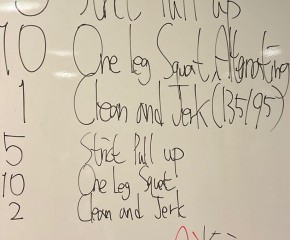 Strict Pull up
10 One Leg Squat Alternating
1 Clean and Jerk (135/95)
5 Strict Pull up
10 One Leg Squat
2 Clean and Jerk